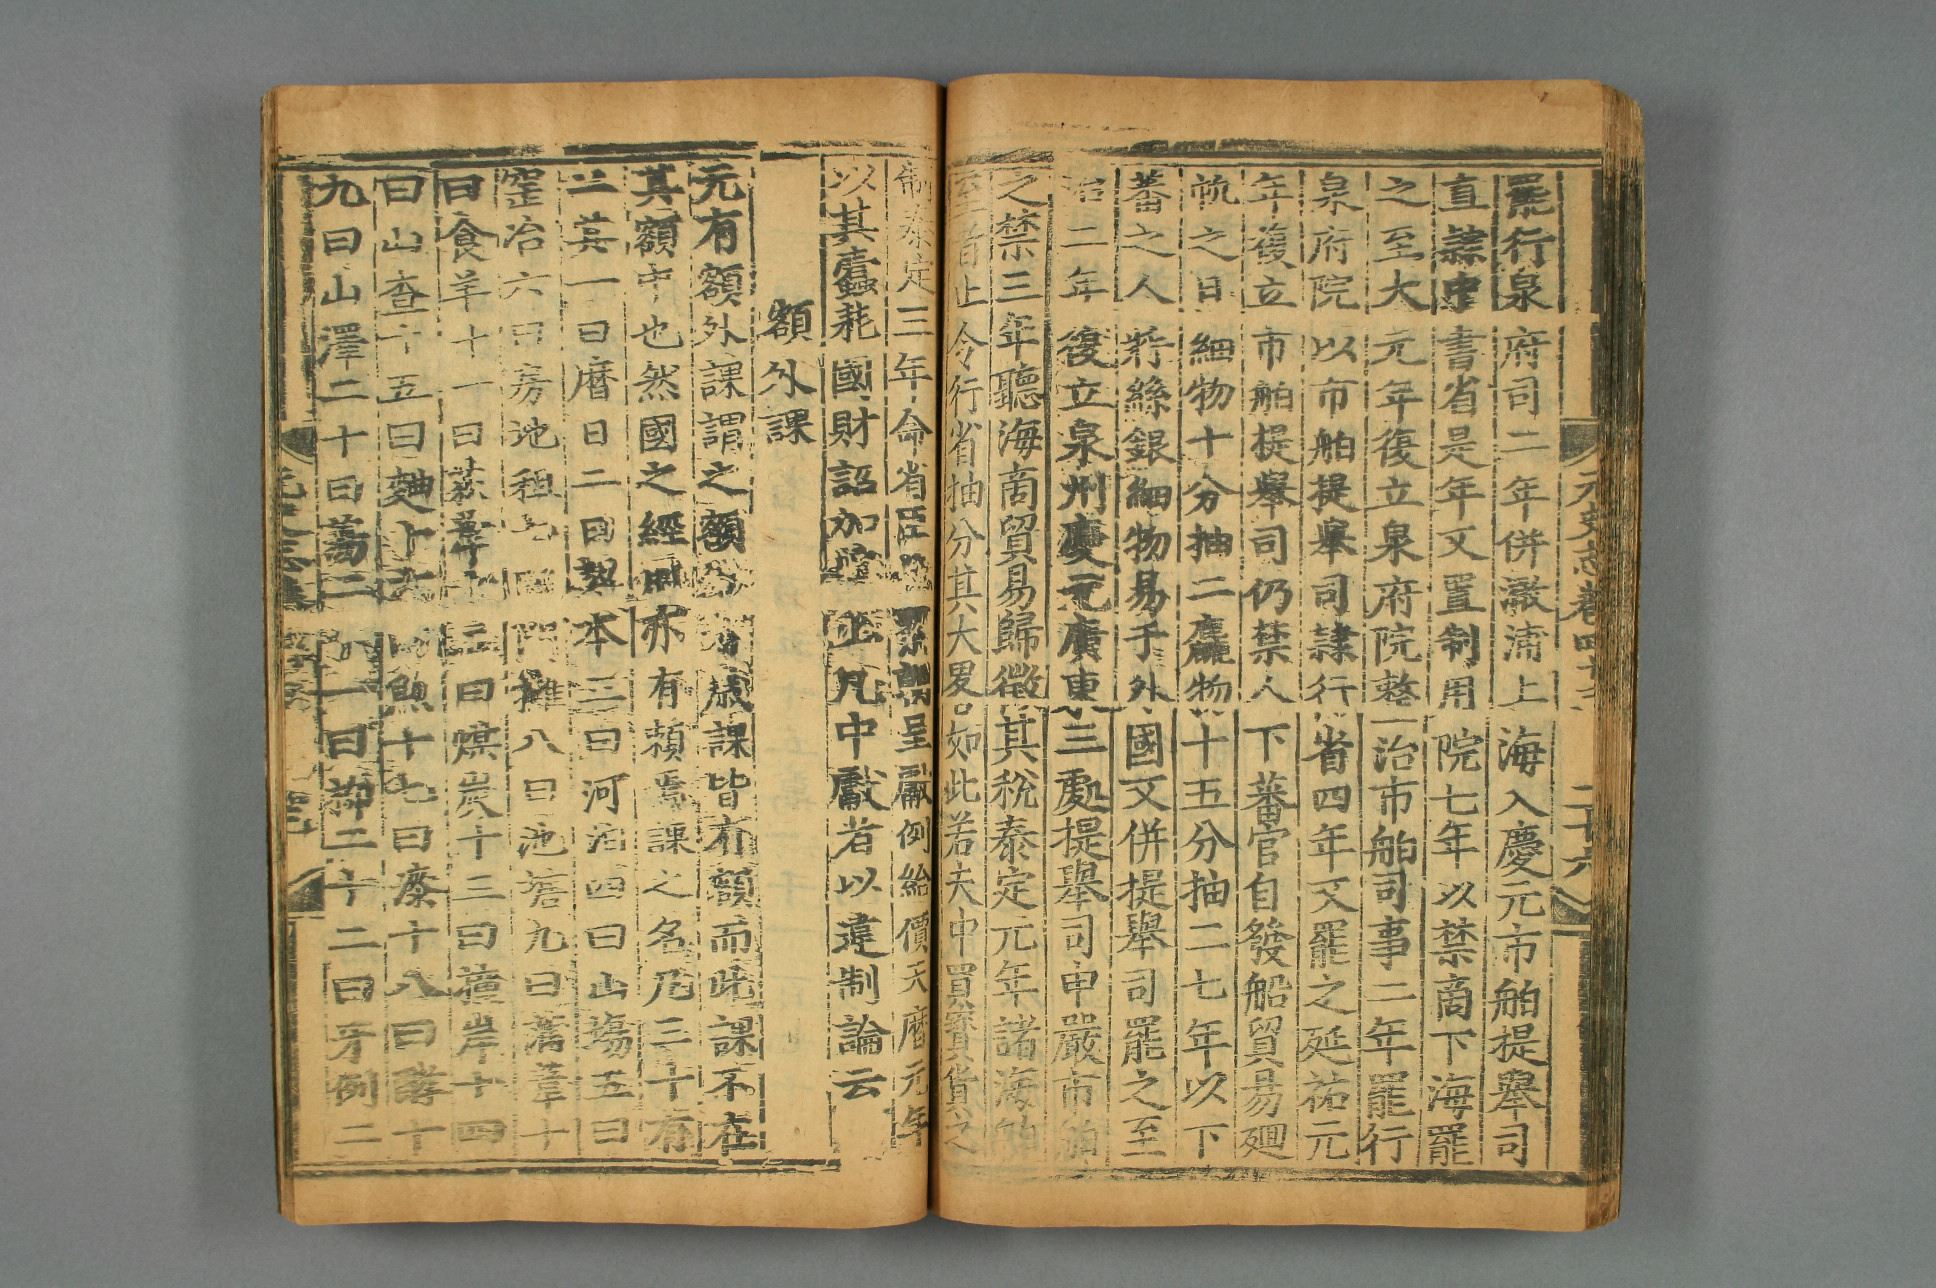 元史志卷四十 二十六
罷行泉府司二年併澉浦上海入慶元市舶提舉司
直隸中書省是年又置制用院七年以禁商下海罷
之至大元年復立泉府院整治市舶司事二年罷行
泉府院以市舶提舉司隸行省四年又罷之延祐元
年復立市舶提舉司仍禁人下蕃官自發船貿易廻
帆之日細物十分抽二麄物十五分抽二七年以下
蕃之人將絲銀細物易于外國又併提舉司罷之至
治二年復立泉州慶元廣東三處提舉司申嚴市舶
之禁三年聽海商貿易歸徵其稅泰定元年諸海舶
至者止令行省抽分其大畧如此若夫中買寶貨之
制泰定三年命省臣 呈獻例給價天曆元年
以其蠹耗國財詔加 止凡中獻者以違制論云
額外課
元有額外課謂之額外 歲課皆有額而此課不在
其額中也然國之經用亦有賴焉課之名凡三十有
二其一曰曆日二曰契本三曰河泊四曰山場五曰
窑冶六曰房地租七曰門攤八曰池塘九曰蒲葦十
曰食羊十一曰荻葦十二曰煤炭十三曰撞岸十四
曰山查十五曰麯十六曰魚十七曰漆十八曰酵十
九曰山澤二十曰蕩二十一曰柳二十二曰牙例二